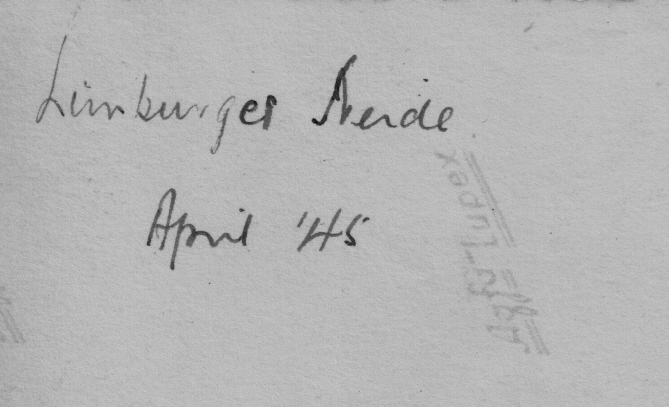 Limburger Heide
April '45
Agfa-Lupex